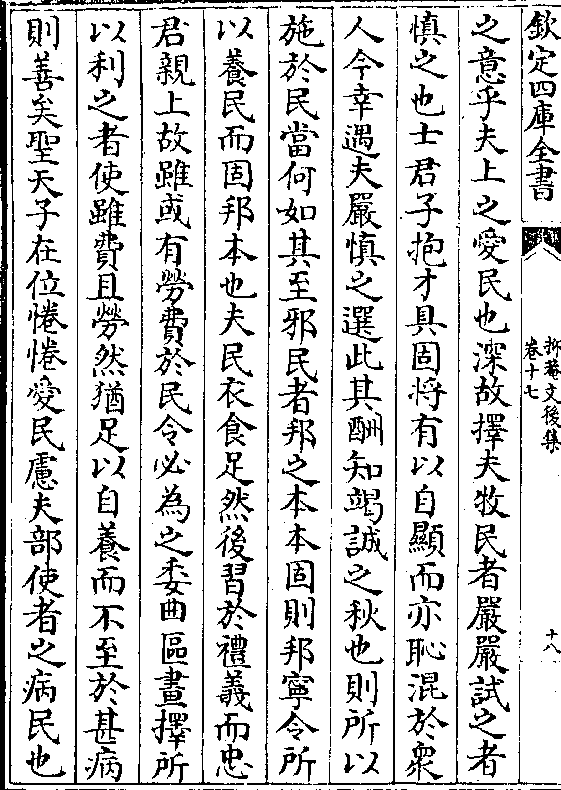 欽定四庫全書
抑菴文後集
卷十七
十八
之意乎夫上之愛民也深故擇夫牧民者嚴嚴試之者
慎之也士君子抱才具固将有以自顯而亦恥混於衆
人今幸遇夫嚴慎之選此其酬知竭誠之秋也則所以
施於民當何如其至邪民者邦之本本固則邦寧令所
以養民而固邦本也夫民衣食足然後習於禮義而忠
君親上故雖或有勞費於民令必為之委曲區畫擇所
以利之者使雖費且勞然猶足以自養而不至於甚病
則善矣聖天子在位惓惓愛民慮夫部使者之病民也